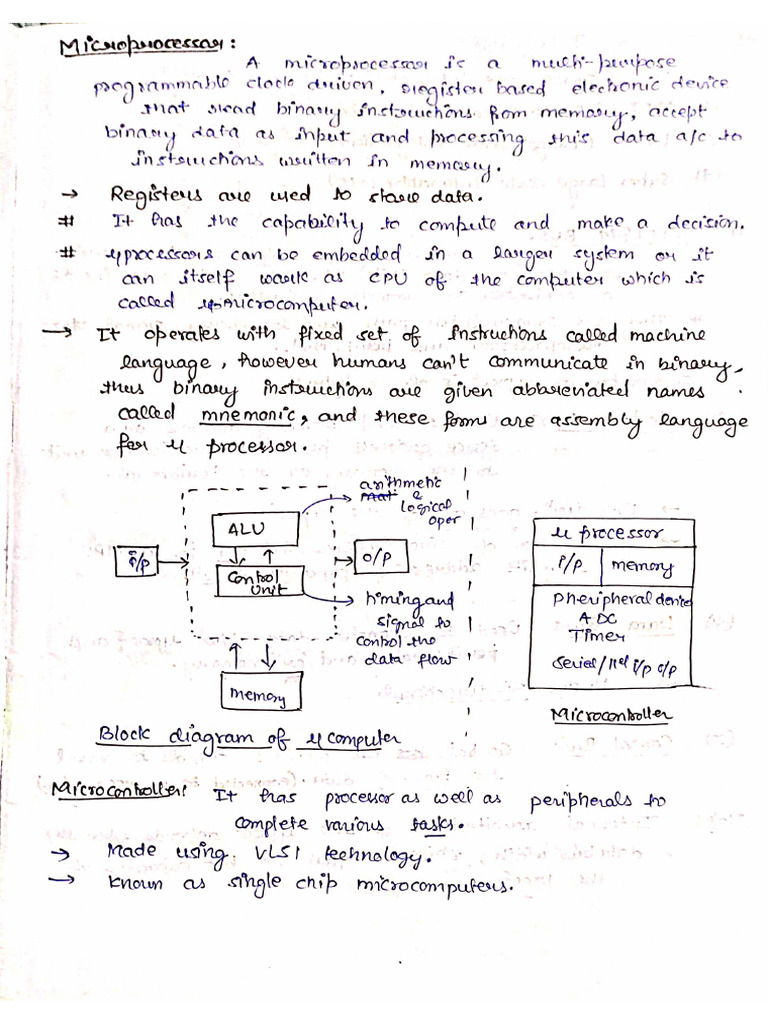 Microprocessor:
A microprocessor is a multi-purpose
programmable clock driven, register based electronic device
that read binary instructions from memory, accept
binary data as input and processing this data a/c to
instructions written in memory.
→ Registers are used to store data.
# It has the capability to compute and make a decision.
# μprocessors can be embedded in a larger system or it
can itself work as CPU of the computer which is
called μ-microcomputer.
→ It operates with fixed set of instructions called machine
language, however humans can't communicate in binary,
thus binary instructions are given abbreviated names
called mnemonic, and these forms are assembly language
for μ processor.
arithmetic
&
logical
oper
ALU
i/p
O/P
Control
Unit
timing and
signal to
control the
data flow
memory
Block diagram of μ computer
μ processor
I/p memory
Pheripheral device
ADC
Timer
Serial/llel i/p o/p
Microcontroller
Microcontroller: It has processor as well as peripherals to
complete various tasks.
→ Made using VLSI technology.
→ Known as single chip microcomputers.